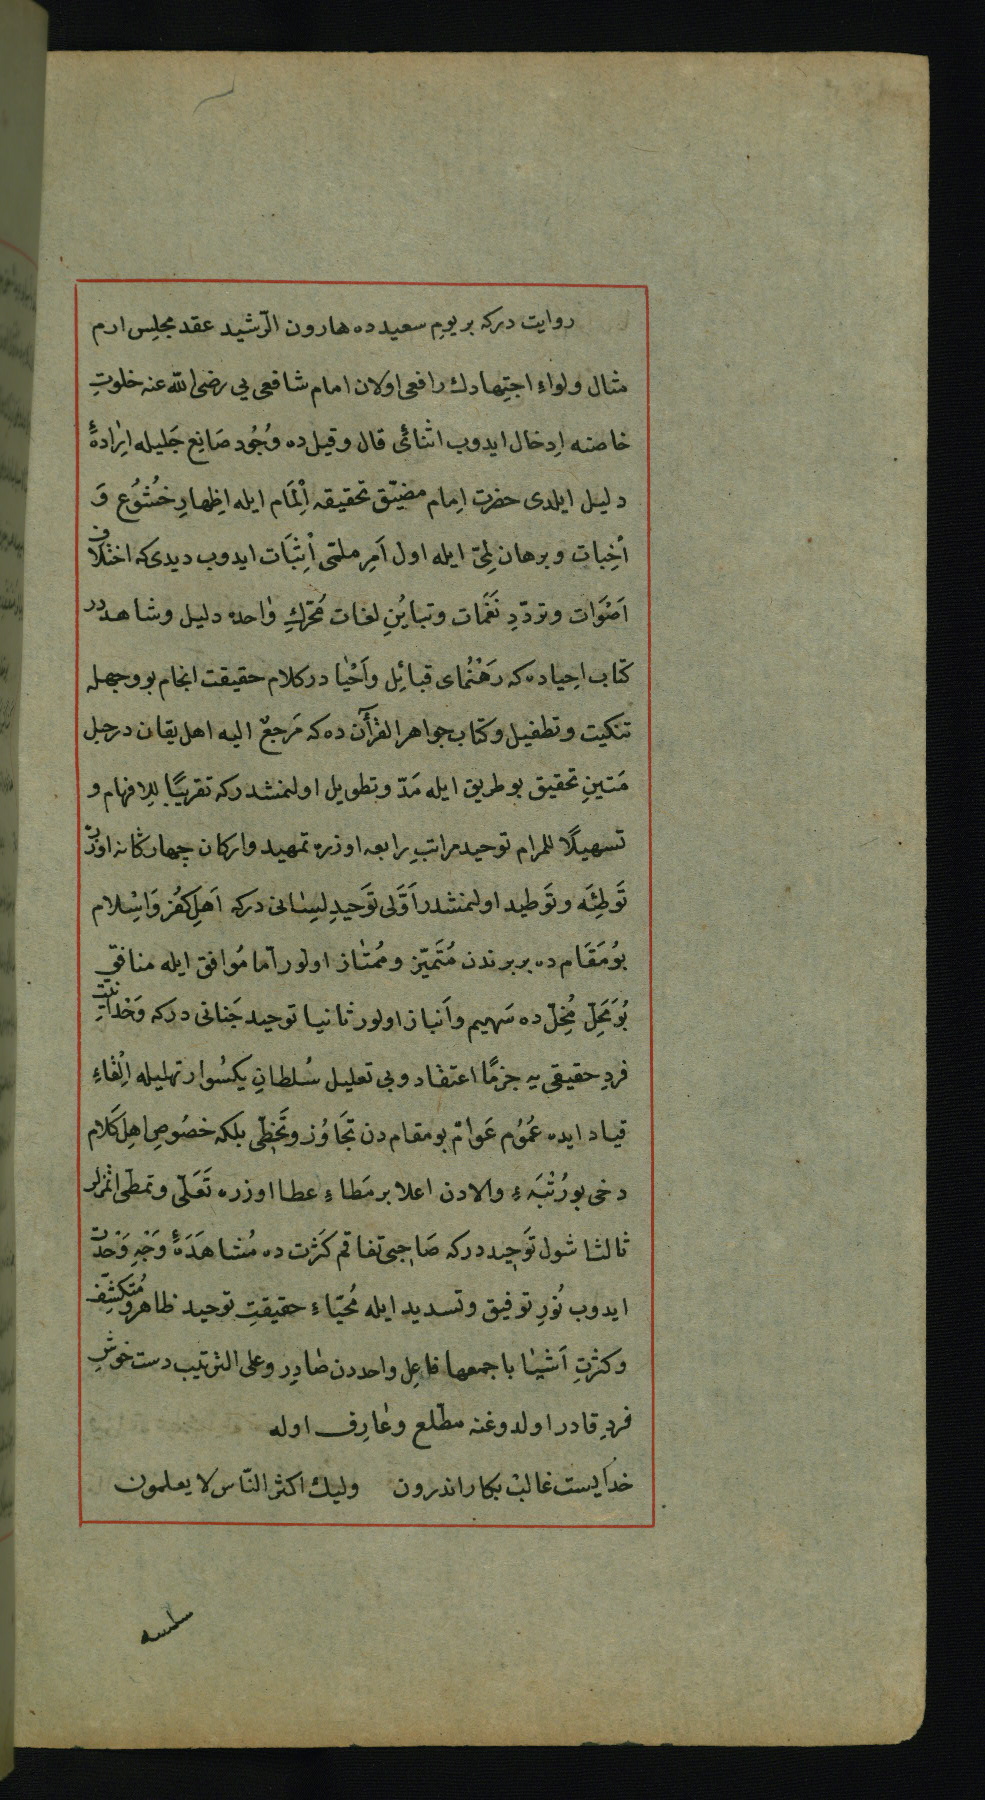 روايت دركه بر يومِ سعيدده هارون الرّشيد عقد مجلِس ارم
مثال ولواءِ اجتِهادك رافعى اولان امام شافعى يى رضى اللّه عنه خلوتِ
خاصنه اِدخال ايدوب اثنائ قال وقيل ده وُجُود صَانِعِ جَليله اِيرادهٔ
دليل ايلدى حضرت اِمام مضيّق تحقيقه اِلمَام ايله اِظهارِ خُشُوُع وَ
اْخِبات وبرهان لِمّى ايله اول اَمِر ملتمى اْثِبَات ايدوب ديدى كه اختلاف
اَصْوَات وتردّدِ نَغَمات وتبايُنِ لغات مُحّرِكِ وٰاحده دليل وشاهد در
كتاب احياده كه رَهْنُماى قبائِل وَاَحْيٰا در كلام حقيقت انجام بو وجهله
تنكيت وتطفيل وكتاب جواهر القرأن ده كه مَرجعٌ اليه اهل يقان در حبل
مَتينِ تحقيق بو طريق ايله مَدّ وتطويل اولنمشدركه تقريبًا للِافهام و
تسهيلًا للمرام توحيد مراتبِ رابعه اوزره تمهيد واركان چهاركانه اوزره
تَوطِئَه وتَوطيد اولنمشدر اَوّلى تَوحَيدِ لِسِانى دركه اَهلِ كفُز وَاسْلام
بوُ مَقَام ده بربرندن مُتَميّز ومُمتٰاز اولور امّا مُوافق ايله منافق
بُو مَحلِّ مُخِلّ ده سَهيم واَنباز اولور ثانيا توحيد جَنانى دركه وَحْدانيّتِ
فردِ حقيقى يه جزمًا اعتقاد وبى تعليل سُلطانِ يكسُوار تهليله اِلْقاءِ
قياد ايده عُمُوُم عَوامّ بو مقام دن تجَاوُز وتَخطّى بلكه خصُوصِ اهل كَلام
دخى بو رُتْبَهءِ والادن اعلا بر مَطاءِ عطا اوزره تَعَلّى وتمطّى اتمزلر
ثالثا شول تَوحيد دركه صَاحِبى تفاقم كَثرت ده مُشاهَدَهٔ وَجْهِ وَحْدت
ايدوب نُورِ توفيق وتسديد ايله مُحيّاءِ حقيقتِ توحيد ظاهر ومُتكشِّف
وكثرتِ اَشيٰا باجمعها فاعِل واحددن صٰادِر وعلى الترتيب دست خوشِ
فردِ قادر اولدوغنه مطّلع وعٰارِف اوله
خدايست غالبْ بكار اندرون    وليك اكثر النّاس لا يعلمون